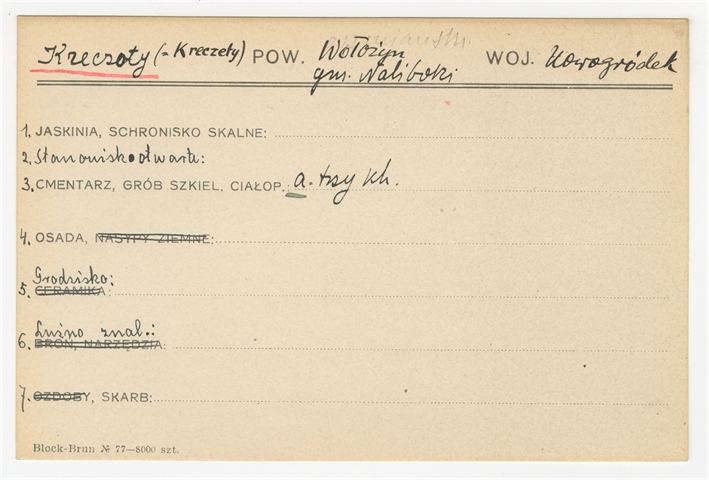 Kreczoty (= Kreczety) POW. Wołożyn WOJ. Nowogródek
gm. Naliboki
1. JASKINIA, SCHRONISKO SKALNE:
2. Stanowisko otwarte:
3. CMENTARZ, GRÓB SZKIEL. CIAŁOP.: a. trzy kh.
4. OSADA, NASYPY ZIEMNE:
Grodzisko:
5. CERAMIKA:
Luźno znal.:
6. BROŃ, NARZĘDZIA:
7. OZDOBY, SKARB:
Block-Brun № 77—8000 szt.